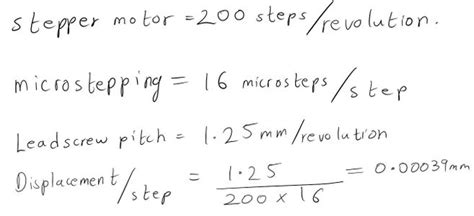 stepper motor = 200 steps/revolution.
microstepping = 16 microsteps/step
Leadscrew pitch = 1.25mm/revolution
Displacement/step = 1.25 / 200 x 16 = 0.00039mm